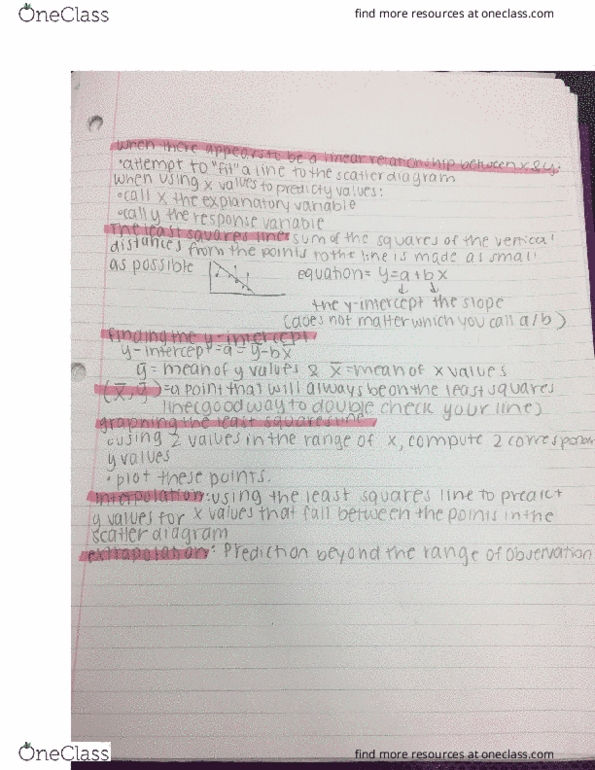 OneClass
find more resources at oneclass.com
when there appears to be a linear relationship between x & y:
•attempt to "fit" a line to the scatter diagram
when using x values to predict y values:
•call x the explanatory variable
•call y the response variable
The least squares line: sum of the squares of the vertical
distances from the points to the line is made as small
as possible
equation= y=a+bx
↓ ↓
the y-intercept the slope
(does not matter which you call a/b)
finding the y-intercept
y-intercept=a=y̅-bx̅
y̅= mean of y values & x̅=mean of x values
(x̅,y̅)=a point that will always be on the least squares
line(good way to double check your line)
graphing the least squares line
•using 2 values in the range of x, compute 2 correspon
y values
•plot these points.
interpolation:using the least squares line to predict
y values for x values that fall between the points in the
scatter diagram
extrapolation: Prediction beyond the range of observation
OneClass
find more resources at oneclass.com